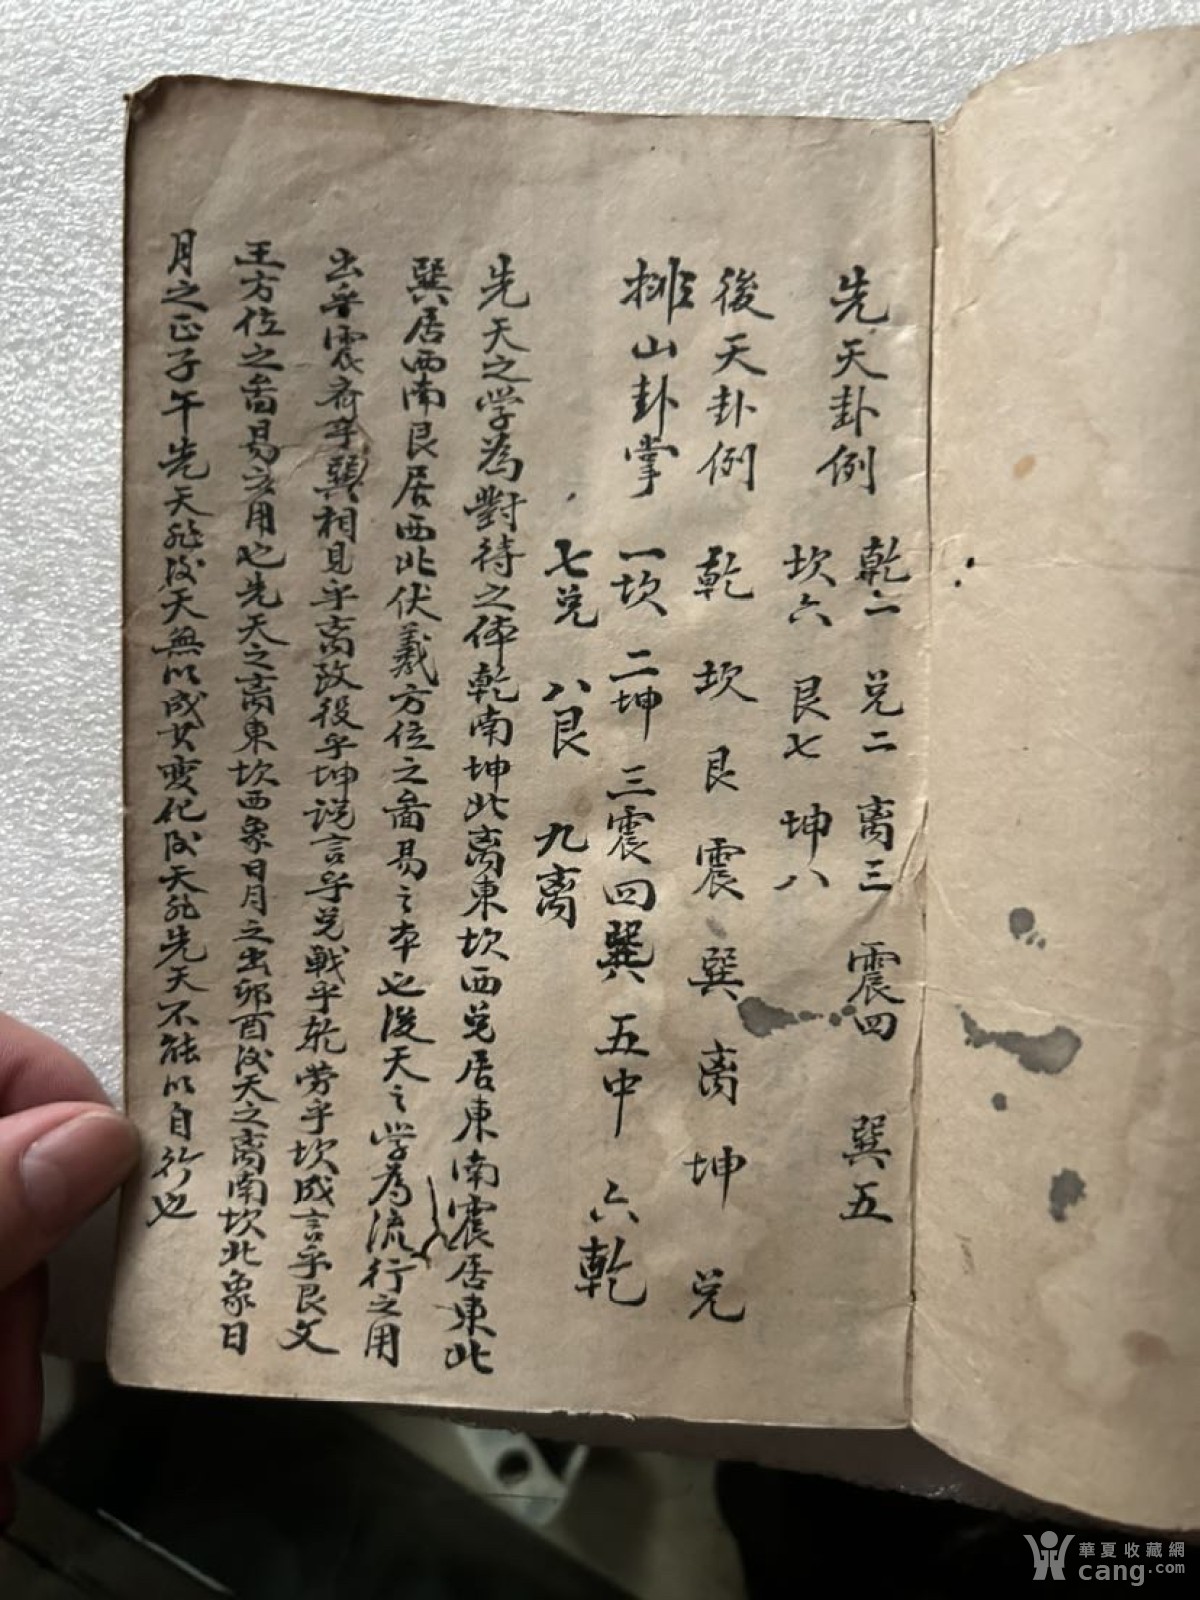 先天卦例 乾一 兑二 离三 震四 巽五
坎六 艮七 坤八
後天卦例 乾 坎 艮 震 巽 离 坤 兑
排山卦掌 一坎 二坤 三震 四巽 五中 六乾
七兑 八艮 九离
先天之学為對待之体乾南坤北离東坎西兑居東南震居東北
巽居西南艮居西北伏羲方位之畨易之本也後天之学為流行之用
出乎震齊乎巽相見乎离致役乎坤说言乎兑戰乎乾劳乎坎成言乎艮文
王方位之畨易之用也先天之离東坎西象日月之出卯酉後天之离南坎北象日
月之正子午先天非後天無以成其变化後天非先天不能以自行也
華夏收藏網
cang.com